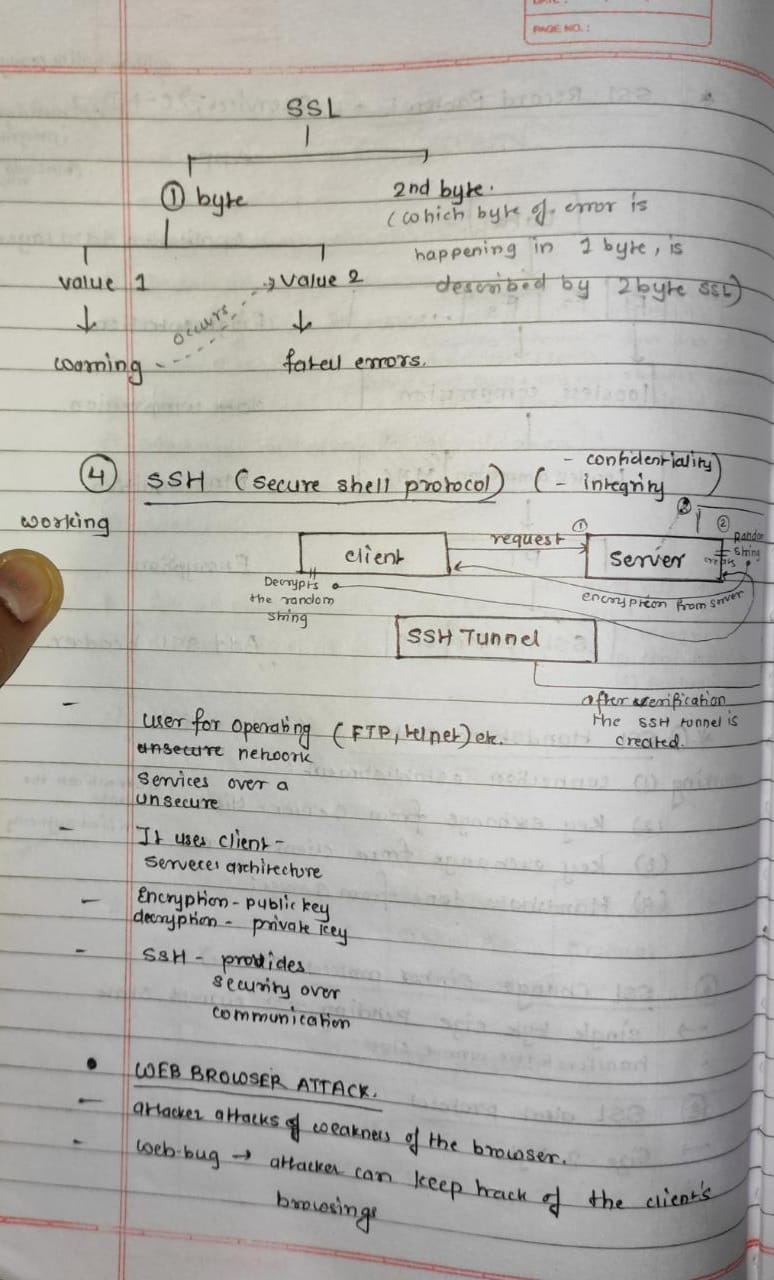 PAGE NO.:
SSL
① byte
2nd byte.
(which byte of error is
happening in 1 byte, is
described by 2 byte SSL)
value 1
value 2
occurs
warning
fatel errors.
④ SSH (secure shell protocol) (- confidentiality)
- integrity
working
client
request
①
server
②
Random
string
Decrypts
the random
string
encryption from server
SSH Tunnel
after verification
the SSH tunnel is
created.
- user for operating (FTP, telnet) etc.
unsecure network
services over a
unsecure
- It uses client -
serveces architecture
- Encryption - public key
decryption - private key
- SSH - provides
security over
communication
• WEB BROWSER ATTACK.
- attacker attacks of weakness of the browser.
- web-bug → attacker can keep track of the client's
browsings